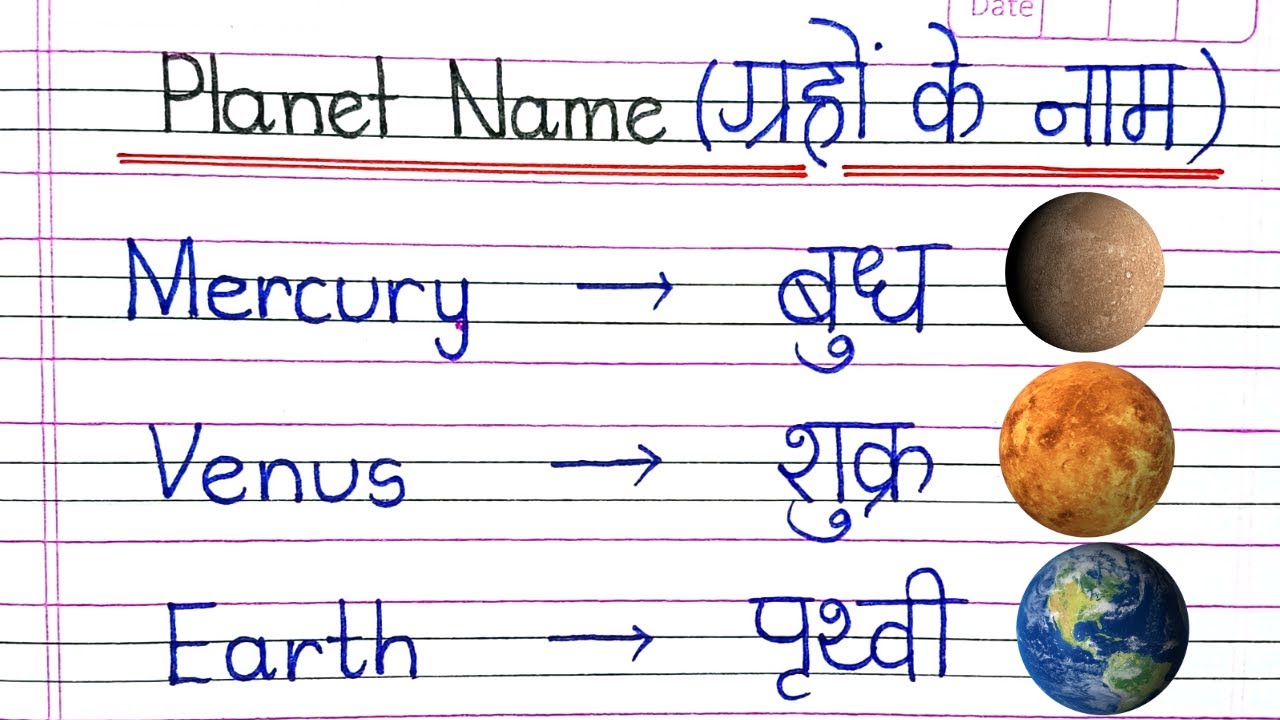 Date
Planet Name (ग्रहों के नाम)
Mercury → बुध
Venus → शुक्र
Earth → पृथ्वी